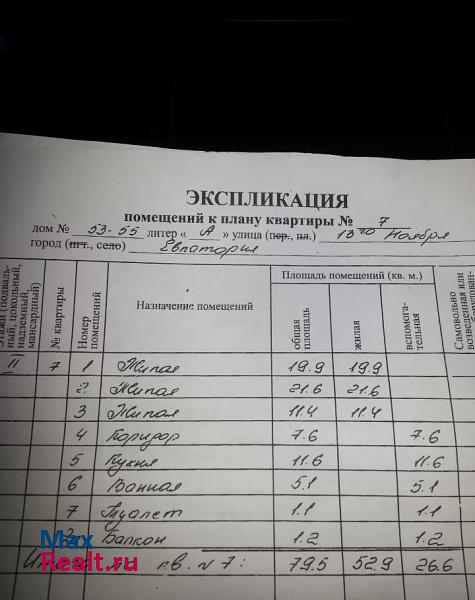 ЭКСПЛИКАЦИЯ
помещений к плану квартиры № 7
дом № 53-55 литер « А » улица (пер., пл.) 13го Ноября
город (пгт., село) Евпатория
Этажи (подваль-
ный, цокольный,
надземный,
мансардный)
№ квартиры
Номер
помещений
Назначение помещений
Площадь помещений (кв. м.)
общая
площадь
жилая
вспомога-
тельная
Самовольно
возведенная или
II 7 1 Жилая 19.9 19.9
2 Жилая 21.6 21.6
3 Жилая 11.4 11.4
4 Коридор 7.6 7.6
5 Кухня 11.6 11.6
6 Ванная 5.1 5.1
7 Туалет 1.1 1.1
Балкон 1.2 1.2
кв. N 7: 79.5 52.9 26.6
Max
Realt.ru